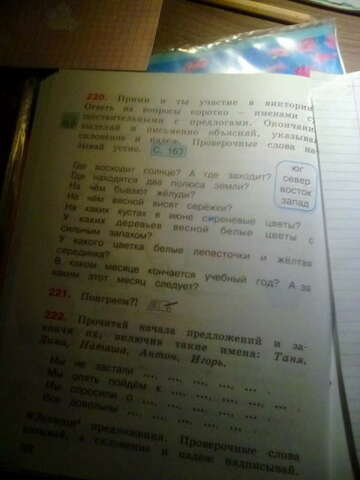 220. Прими и ты участие в викторине.
Ответь на вопросы коротко – именами су-
ществительными с предлогами. Окончания
выдели и письменно объясни, указывая
склонение и падеж. Проверочные слова на-
зывай устно. С. 167
Где восходит солнце? А где заходит?
Где находятся два полюса земли?
На чём бывают жёлуди?
На чём весной висят серёжки?
На каких кустах в июне сиреневые цветы?
У каких деревьев весной белые цветы с
сильным запахом?
У какого цветка белые лепесточки и жёлтая
серединка?
В каком месяце кончается учебный год? А за
каким этот месяц следует?
юг
север
восток
запад
221. Поиграем?!
222. Прочитай начала предложений и за-
кончи их, включив такие имена: Таня,
Дима, Наташа, Антон, Игорь.
Мы не застали ..., ..., ..., ..., ... .
Мы опять пойдём к ..., ..., ..., ..., ... .
Мы спросили о ..., ..., ..., ..., ... .
Все довольны ..., ..., ..., ..., ... .
предложения. Проверочные слова
называй, а склонение и падеж надписывай.